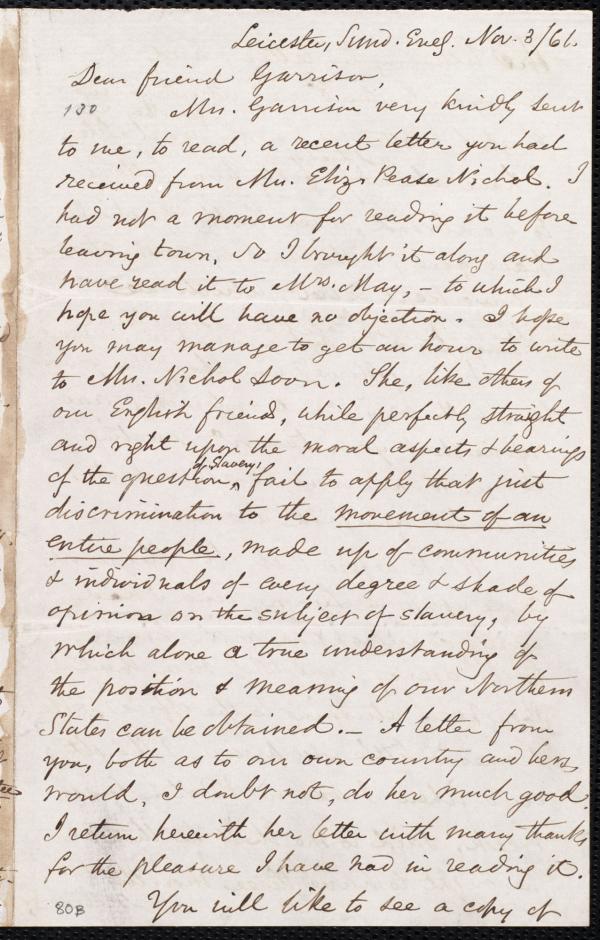 Leicester, Sund. Eveg. Nov. 3/61.
Dear friend Garrison,
130 Mrs. Garrison very kindly sent
to me, to read, a recent letter you had
received from Mrs. Eliz. Pease Nichol. I
had not a moment for reading it before
leaving town, so I brought it along and
have read it to Mrs. May, – to which I
hope you will have no objection. I hope
you may manage to get an hour to write
to Mrs. Nichol soon. She, like others of
our English friends, while perfectly straight
and right upon the moral aspects & bearings
of Slavery,
of the question ^ fail to apply that just
discrimination to the movement of an
entire people, made up of communities
& individuals of every degree & shade of
opinion on the subject of slavery, by
which alone a true understanding of
the position & meaning of our Northern
States can be obtained. – A letter from
you, both as to our own country and hers,
would, I doubt not, do her much good.
I return herewith her letter with many thanks
for the pleasure I have had in reading it.
You will like to see a copy of
80B